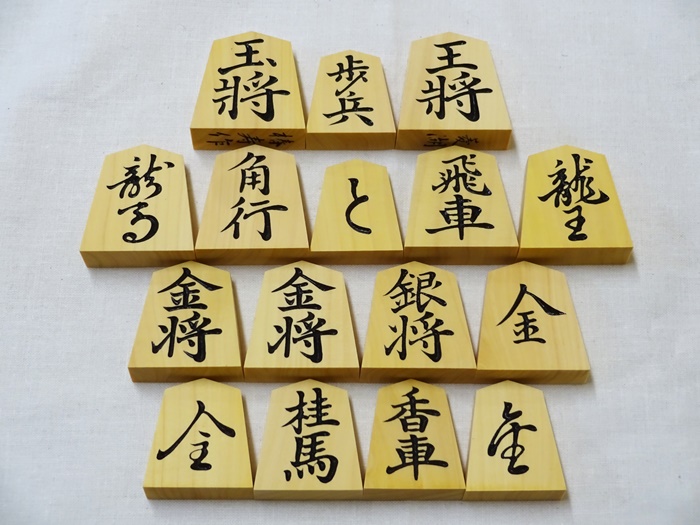 玉將
歩兵
王將
龍馬
角行
と
飛車
龍王
金将
金将
銀将
金
全
桂馬
香車
金